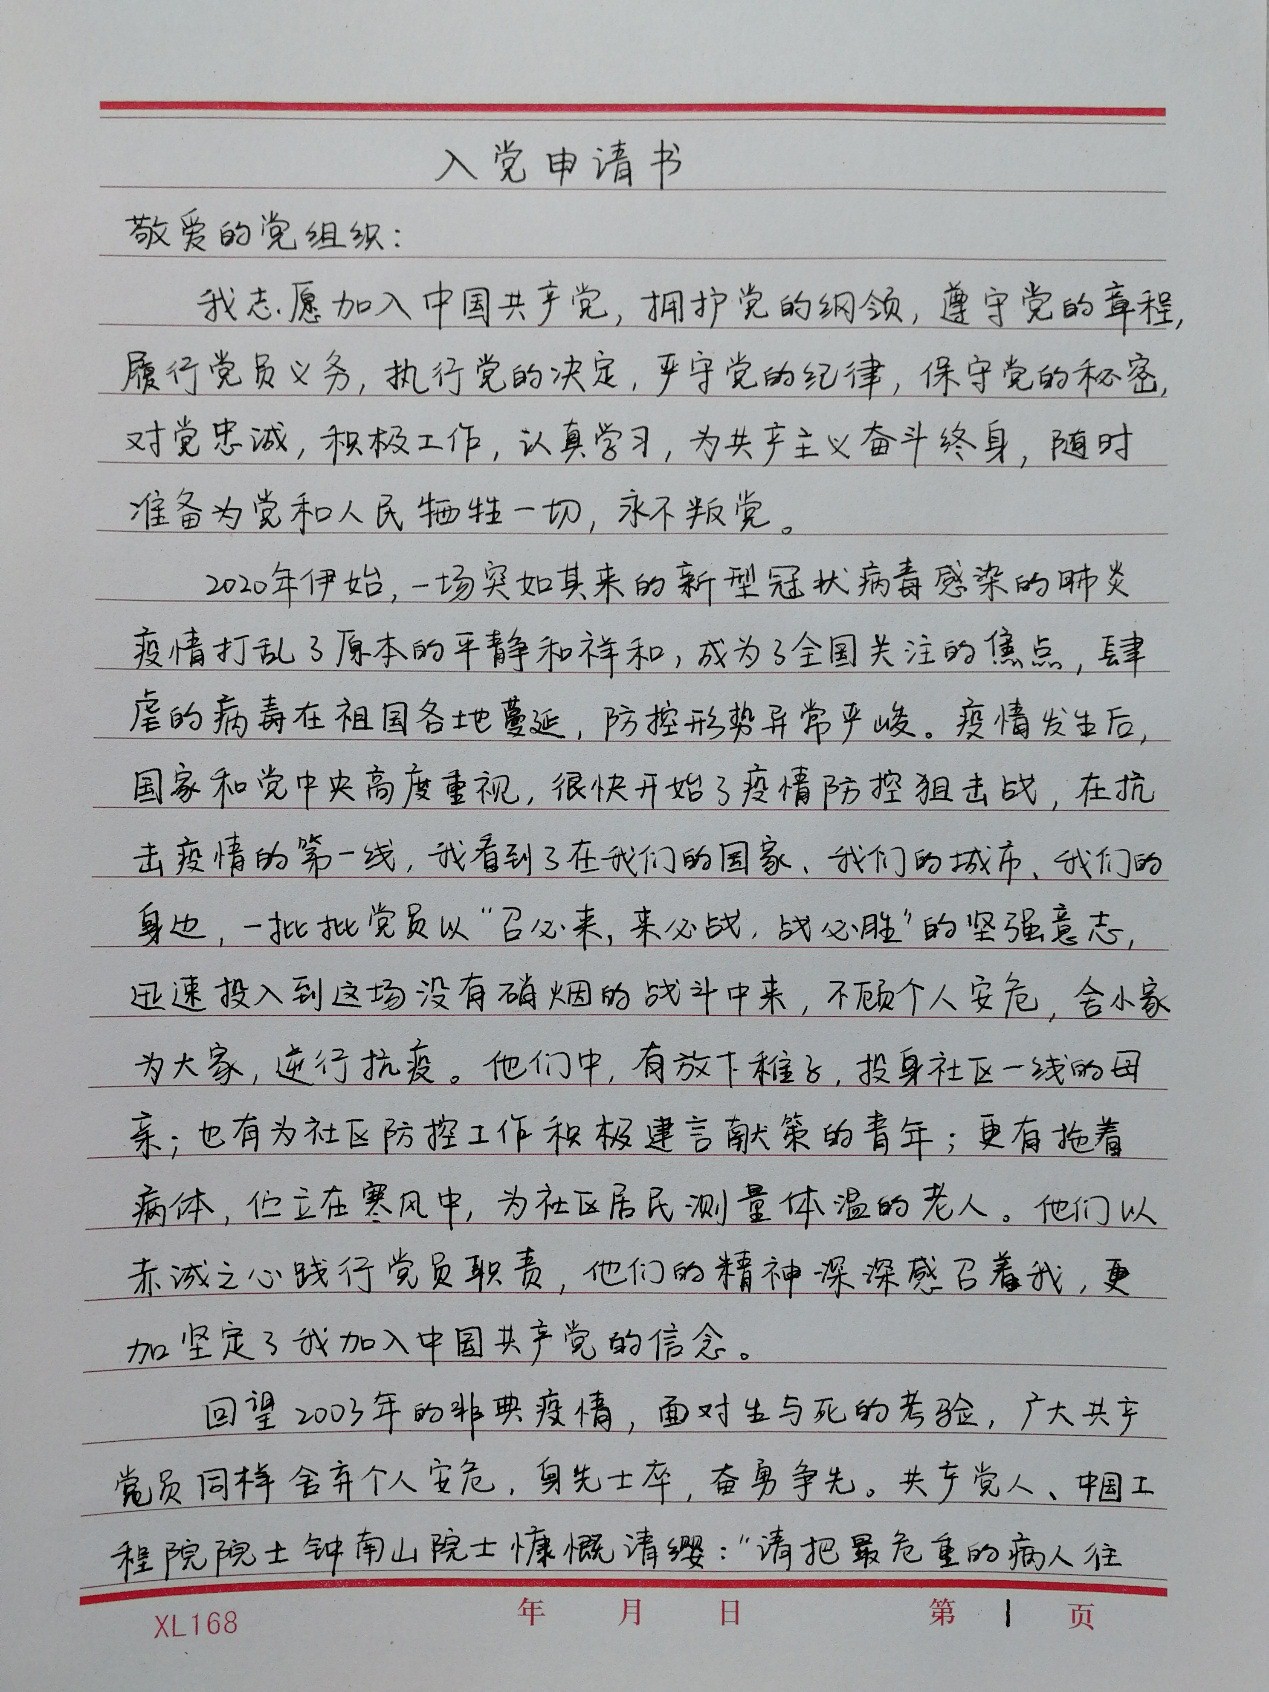 入党申请书
敬爱的党组织：
我志愿加入中国共产党，拥护党的纲领，遵守党的章程，
履行党员义务，执行党的决定，严守党的纪律，保守党的秘密，
对党忠诚，积极工作，认真学习，为共产主义奋斗终身，随时
准备为党和人民牺牲一切，永不叛党。
2020年伊始，一场突如其来的新型冠状病毒感染的肺炎
疫情打乱了原本的平静和祥和，成为了全国关注的焦点，肆
虐的病毒在祖国各地蔓延，防控形势异常严峻。疫情发生后，
国家和党中央高度重视，很快开始了疫情防控狙击战，在抗
击疫情的第一线，我看到了在我们的国家、我们的城市、我们的
身边，一批批党员以“召必来，来必战，战必胜”的坚强意志，
迅速投入到这场没有硝烟的战斗中来，不顾个人安危，舍小家
为大家，逆行抗疫。他们中，有放下稚子，投身社区一线的母
亲；也有为社区防控工作积极建言献策的青年；更有拖着
病体，伫立在寒风中，为社区居民测量体温的老人。他们以
赤诚之心践行党员职责，他们的精神深深感召着我，更
加坚定了我加入中国共产党的信念。
回望2003年的非典疫情，面对生与死的考验，广大共产
党员同样舍弃个人安危，身先士卒，奋勇争先。共产党人、中国工
程院院士钟南山院士慷慨请缨：“请把最危重的病人往
XL168 年 月 日 第 1 页